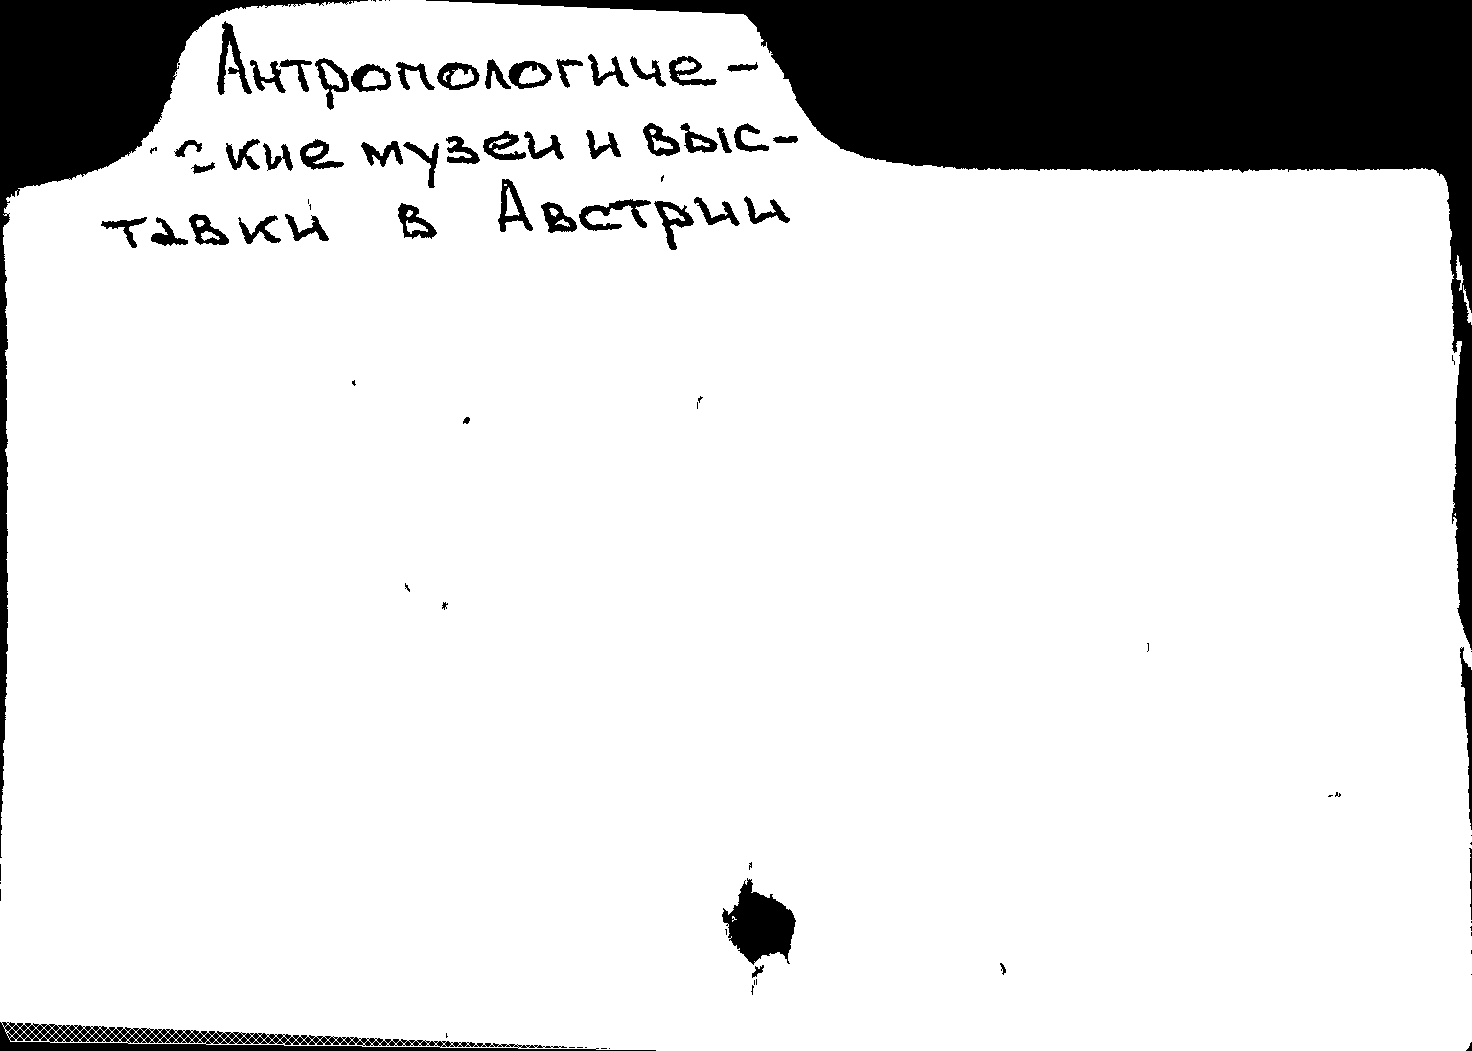 Антропологиче-
ские музеи и выс-
тавки в Австрии